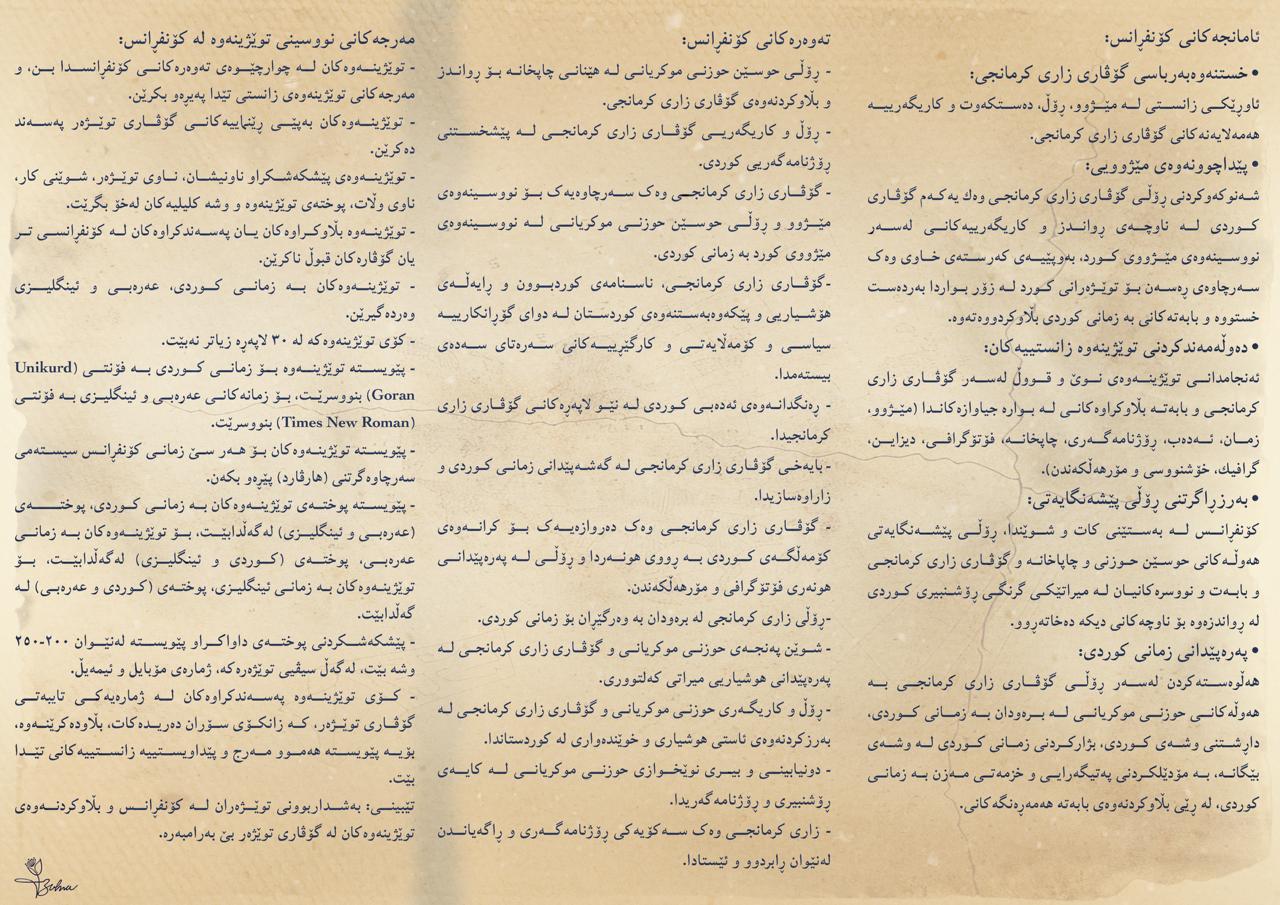 ئامانجەکانی کۆنفرانس:
• خستنەوەبەرباسی گۆڤاری زاری کرمانجی:
ئاوڕێکی زانستی لە مێژوو، ڕۆڵ، دەستکەوت و کاریگەرییە
هەمەلایەنەکانی گۆڤاری زاری کرمانجی.
• پێداچوونەوەی مێژوویی:
شەنوکەوکردنی ڕۆڵی گۆڤاری زاری کرمانجی وەك یەکەم گۆڤاری
کوردی لە ناوچەی ڕواندز و کاریگەرییەکانی لەسەر
نووسینەوەی مێژووی کورد، بەوپێیەی کەرستەی خاوی وەک
سەرچاوەی ڕەسەن بۆ توێژەرانی کورد لە زۆر بواردا بەردەست
خستووە و بابەتەکانی بە زمانی کوردی بڵاوکردووەتەوە.
• دەوڵەمەندکردنی توێژینەوە زانستییەکان:
ئەنجامدانی توێژینەوەی نوێ و قووڵ لەسەر گۆڤاری زاری
کرمانجی و بابەتە بڵاوکراوەکانی لە بوارە جیاوازەکاندا (مێژوو،
زمان، ئەدەب، ڕۆژنامەگەری، چاپخانە، فۆتۆگرافی، دیزاین،
گرافیك، خۆشنووسی و مۆرهەڵکەندن).
• بەرزڕاگرتنی ڕۆڵی پێشەنگایەتی:
کۆنفرانس لە بەستێنی کات و شوێندا، ڕۆڵی پێشەنگایەتی
هەوڵەکانی حوسێن حوزنی و چاپاخانە و گۆڤاری زاری کرمانجی
و بابەت و نووسرەکانیان لە میراتێکی گرنگی ڕۆشنبیری کوردی
لە ڕواندزەوە بۆ ناوچەکانی دیکە دەخاتەڕوو.
• پەرەپێدانی زمانی کوردی:
هەڵوەستەکردن لەسەر ڕۆڵی گۆڤاری زاری کرمانجی بە
هەوڵەکانی حوزنی موکریانی لە برەودان بە زمانی کوردی،
داڕشتنی وشەی کوردی، بژارکردنی زمانی کوردی لە وشەی
بێگانە، بە مۆدێلکردنی پەتیگەرایی و خزمەتی مەزن بە زمانی
کوردی، لە ڕێی بڵاوکردنەوەی بابەتە هەمەڕەنگەکانی.
تەوەرەکانی کۆنفرانس:
- ڕۆڵی حوسێن حوزنی موکریانی لە هێنانی چاپخانە بۆ ڕواندز
و بلاوکردنەوەی گۆڤاری زاری کرمانجی.
- ڕۆڵ و کاریگەریی گۆڤاری زاری کرمانجی لە پێشخستنی
ڕۆژنامەگەریی کوردی.
- گۆڤاری زاری کرمانجی وەک سەرچاوەیەک بۆ نووسینەوەی
مێژوو و ڕۆڵی حوسێن حوزنی موکریانی لە نووسینەوەی
مێژووی کورد بە زمانی کوردی.
-گۆڤاری زاری کرمانجی، ناسنامەی کوردبوون و ڕایەڵەی
هۆشیاریی و پێکەوەبەستنەوەی کوردستان لە دوای گۆڕانکارییە
سیاسی و کۆمەڵایەتی و کارگێڕییەکانی سەرەتای سەدەی
بیستەمدا.
- ڕەنگدانەوەی ئەدەبی کوردی لە نێو لاپەڕەکانی گۆڤاری زاری
کرمانجیدا.
- بایەخی گۆڤاری زاری کرمانجی لە گەشەپێدانی زمانی کوردی و
زاراوەسازیدا.
- گۆڤاری زاری کرمانجی وەک دەروازەیەک بۆ کرانەوەی
کۆمەڵگەی کوردی بە ڕووی هونەردا و ڕۆڵی لە پەرەپێدانی
هونەری فۆتۆگرافی و مۆرهەڵکەندن.
-ڕۆڵی زاری کرمانجی لە برەودان بە وەرگێڕان بۆ زمانی کوردی.
- شوێن پەنجەی حوزنی موکریانی و گۆڤاری زاری کرمانجی لە
پەرەپێدانی هوشیاریی میراتی کەلتووری.
- ڕۆڵ و کاریگەری حوزنی موکریانی و گۆڤاری زاری کرمانجی لە
بەرزکردنەوەی ئاستی هوشیاری و خوێندەواری لە کوردستاندا.
- دونیابینی و بیری نوێخوازی حوزنی موکریانی لە کایەی
ڕۆشنبیری و ڕۆژنامەگەریدا.
- زاری کرمانجی وەک سەکۆیەکی ڕۆژنامەگەری و ڕاگەیاندن
لەنێوان ڕابردوو و ئێستادا.
مەرجەکانی نووسینی توێژینەوە لە کۆنفرانس:
- توێژینەوەکان لە چوارچێوەی تەوەرەکانی کۆنفرانسدا بن، و
مەرجەکانی توێژینەوەی زانستی تێدا پەیڕەو بکرێن.
- توێژینەوەکان بەپێی ڕێنماییەکانی گۆڤاری توێژەر پەسەند
دەکرێن.
- توێژینەوەی پێشکەشکراو ناونیشان، ناوی توێژەر، شوێنی کار،
ناوی وڵات، پوختەی توێژینەوە و وشە کلیلیەکان لەخۆ بگرێت.
- توێژینەوە بڵاوکراوەکان یان پەسەندکراوەکان لە کۆنفرانسی تر
یان گۆڤارەکان قبوڵ ناکرێن.
- توێژینەوەکان بە زمانی کوردی، عەرەبی و ئینگلیزی
وەردەگیرێن.
- کۆی توێژینەوەکە لە ٣٠ لاپەڕە زیاتر نەبێت.
- پێویستە توێژینەوە بۆ زمانی کوردی بە فۆنتی (Unikurd
Goran) بنووسرێت، بۆ زمانەکانی عەرەبی و ئینگلیزی بە فۆنتی
(Times New Roman) بنووسرێت.
- پێویستە توێژینەوەکان بۆ هەر سێ زمانی کۆنفرانس سیستەمی
سەرچاوەگرتنی (هارڤارد) پێڕەو بکەن.
- پێویستە پوختەی توێژینەوەکان بە زمانی کوردی، پوختەی
(عەرەبی و ئینگلیزی) لەگەڵدابێت، بۆ توێژینەوەکان بە زمانی
عەرەبی، پوختەی (کوردی و ئینگلیزی) لەگەڵدابێت، بۆ
توێژینەوەکان بە زمانی ئینگلیزی، پوختەی (کوردی و عەرەبی) لە
گەڵدابێت.
- پێشکەشکردنی پوختەی داواکراو پێویستە لەنێوان ٢٠٠-٢٥٠
وشە بێت، لەگەڵ سیڤیی توێژەرەکە، ژمارەی مۆبایل و ئیمەیڵ.
- کۆی توێژینەوە پەسەندکراوەکان لە ژمارەیەکی تایبەتی
گۆڤاری توێژەر، کە زانکۆی سۆران دەریدەکات، بڵاودەکرێنەوە،
بۆیە پێویستە هەموو مەرج و پێداویستییە زانستییەکانی تێدا
بێت.
تێبینی: بەشداربوونی توێژەران لە کۆنفرانس و بڵاوکردنەوەی
توێژینەوەکان لە گۆڤاری توێژەر بێ بەرامبەرە.